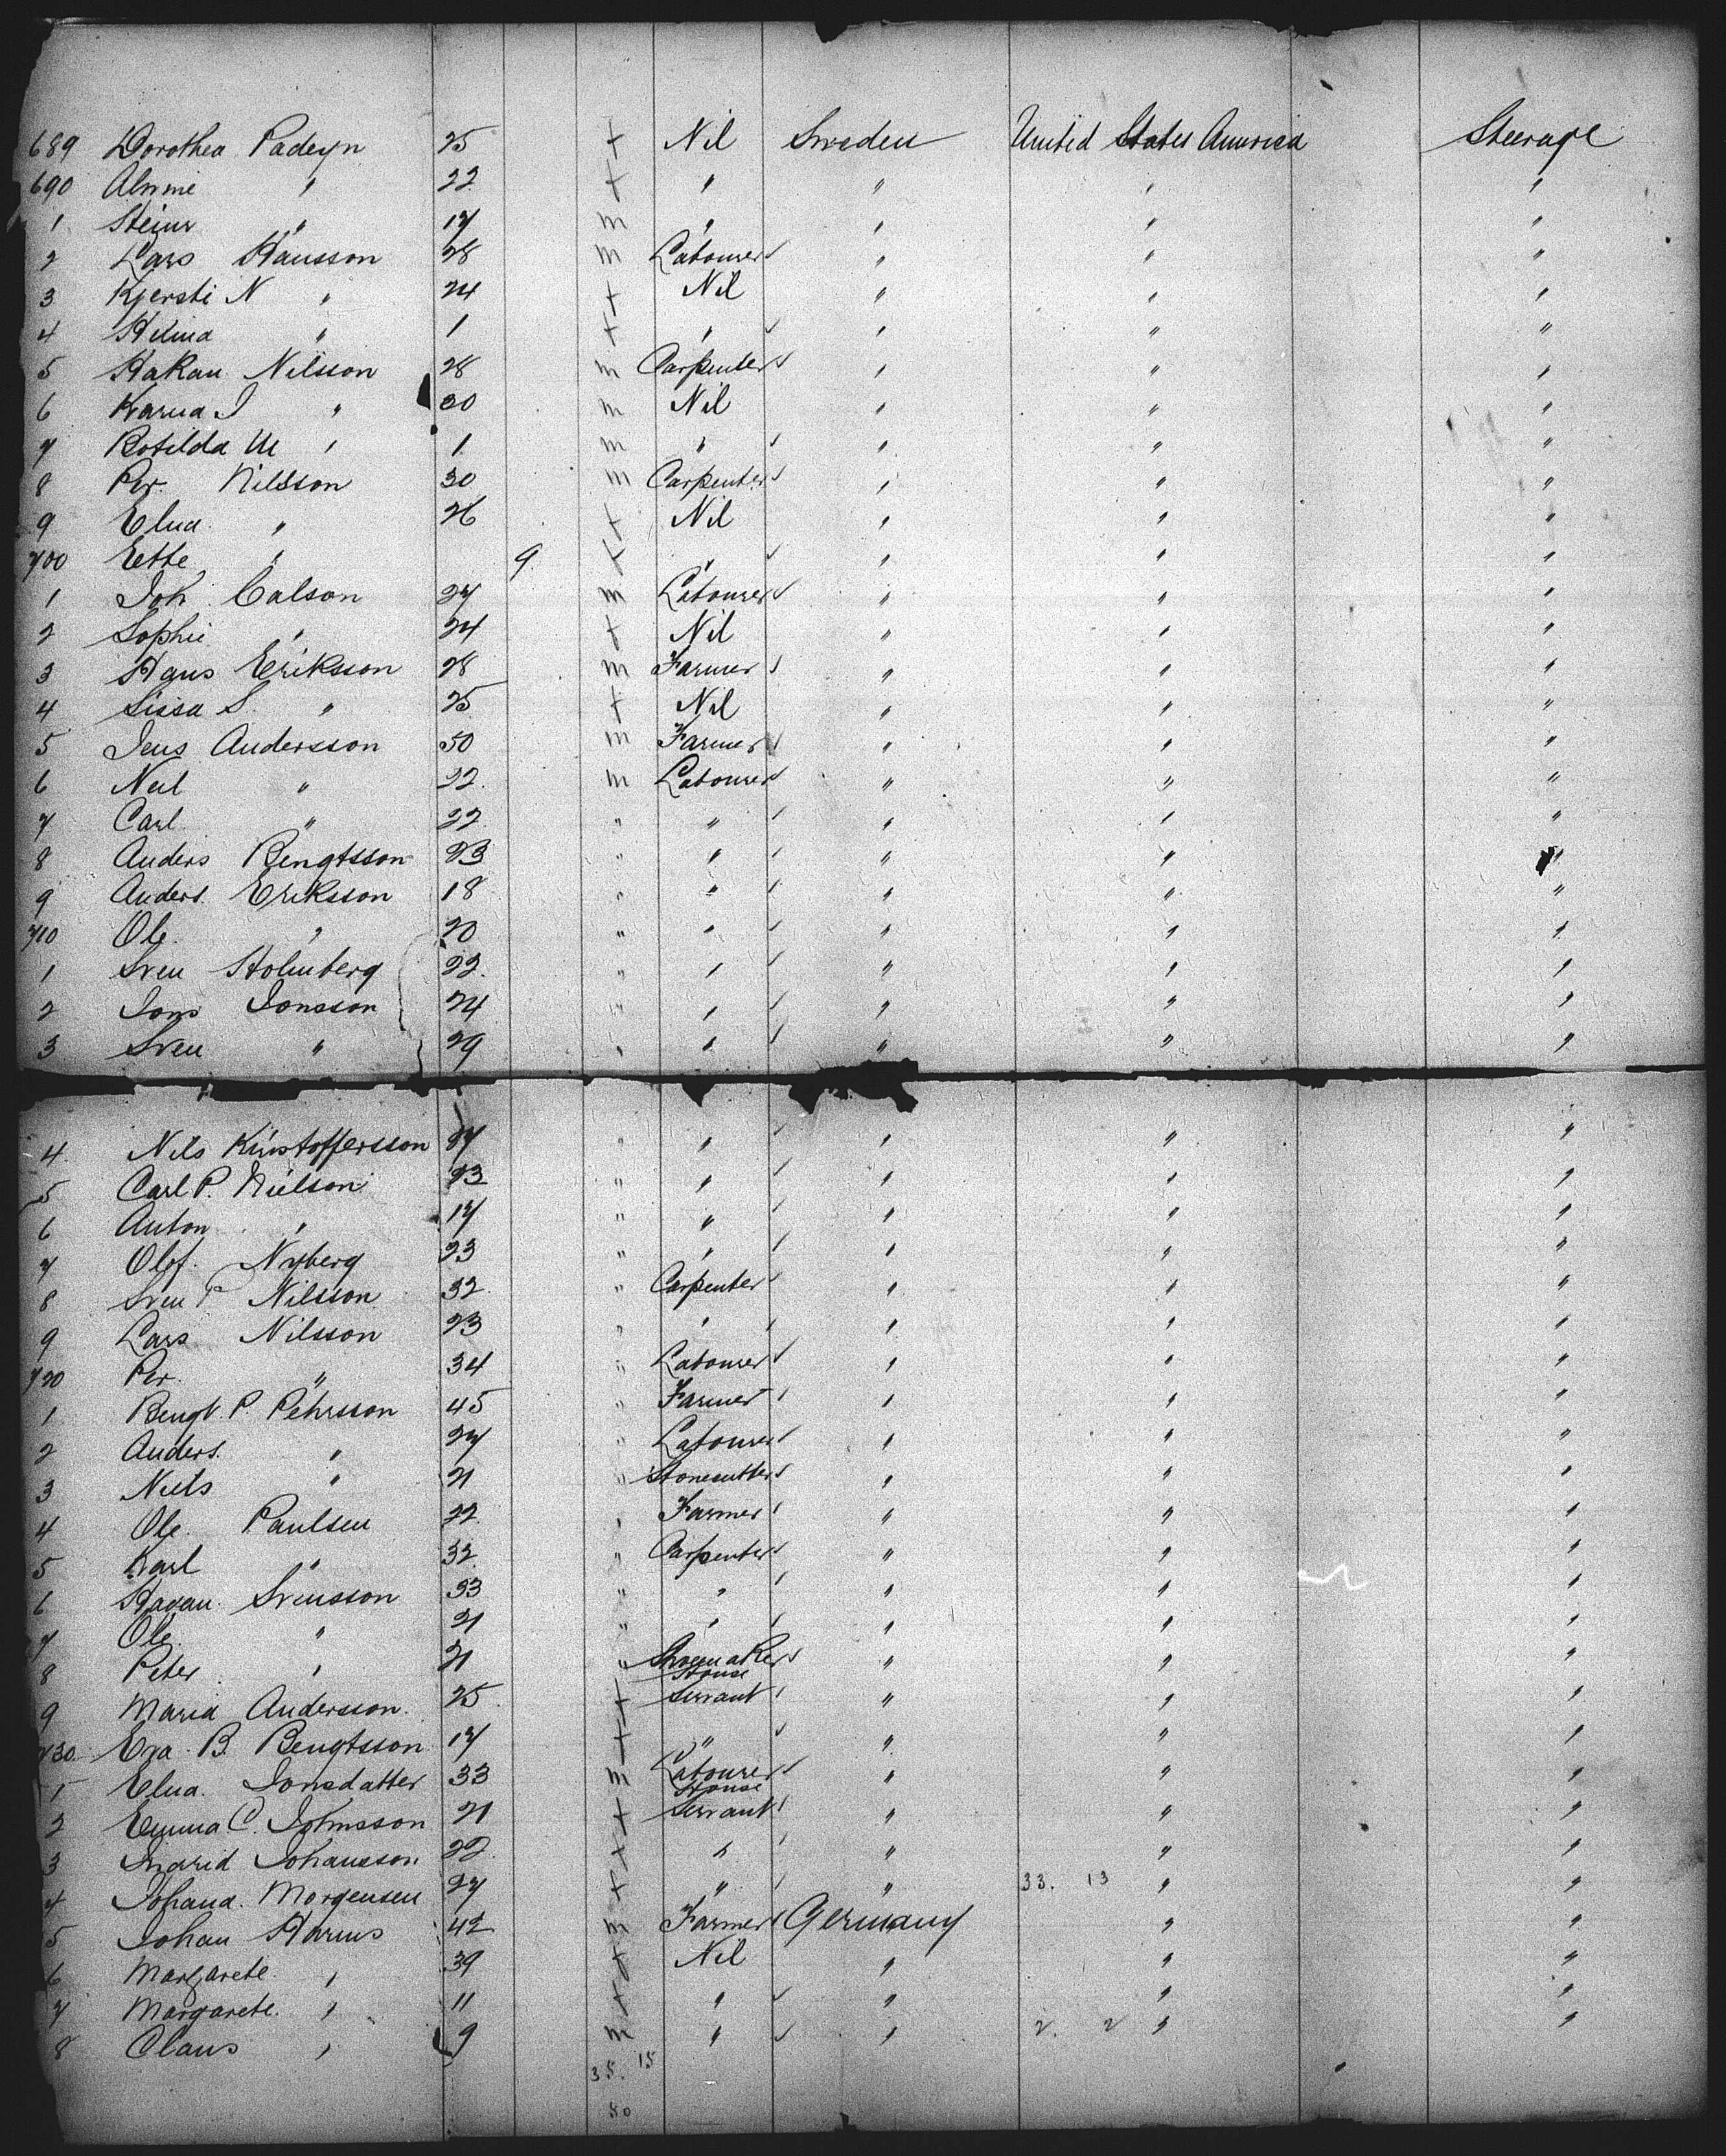 689 Dorothea Padeyn 25 + Nil Sweden United States America Steerage
690 " 22 + " " " "
1 " 17 m " " " "
2 Lars Hansson 28 m Labourer " " "
3 Kjersti N " 24 + Nil " " "
4 Hilma " 1 + " " " "
5 Hakan Nilsson 28 m Carpenter " " "
6 Karna J " 30 m Nil " " "
7 Botilda M " 1 m " " " "
8 Per Nilsson 30 m Carpenter " " "
9 Elna " 26 + Nil " " "
700 Ette " 9 + " " " "
1 Joh Calson 27 m Labourer " " "
2 Sophie " 24 + Nil " " "
3 Hans Eriksson 28 m Farmer " " "
4 Sissa S. " 25 + Nil " " "
5 Jens Andersson 50 m Farmer " " "
6 Neil " 22 m Labourer " " "
7 Carl " 22 " " " " "
8 Anders Bengtsson 23 " " " " "
9 Anders Eriksson 18 " " " " "
710 Ole " 20 " " " " "
1 Sven Holmberg 22 " " " " "
2 Jons Jonsson 24 " " " " "
3 Sven " 29 " " " " "
4 Nils Kristoffersson 27 " " " " "
5 Carl P. Nielson 23 " " " " "
6 Anton " 17 " " " " "
7 Olof Nyberg 23 " " " " "
8 Sven P Nilsson 32 " Carpenter " " "
9 Lars Nilsson 23 " " " " "
720 Per " 34 " Labourer " " "
1 Bengt P. Pehrsson 45 " Farmer " " "
2 Anders " 27 " Labourer " " "
3 Niels " 21 " Stonecutter " " "
4 Ole Paulsen 22 " Farmer " " "
5 Karl " 32 " Carpenter " " "
6 Hagan Svensson 33 " " " " "
7 Ole " 21 " " " " "
8 Peter " 21 " Shoemaker " " "
9 Maria Andersson 25 + House Servant " " "
730 Eva B. Bengtsson 17 + " " " "
1 Elna Jonsdatter 33 m Labourer " " "
2 Emma C. Johnsson 21 + House Servant " " "
3 Ingrid Johansson 22 + " " " "
4 Johana Morgensen 27 + " " 33. 13 " "
5 Johan Harms 42 m Farmer Germany " "
6 Margarete " 39 + Nil " " "
7 Margarete " 11 + " " " "
8 Claus " 9 m " " 2. 2 " "
35. 15
50